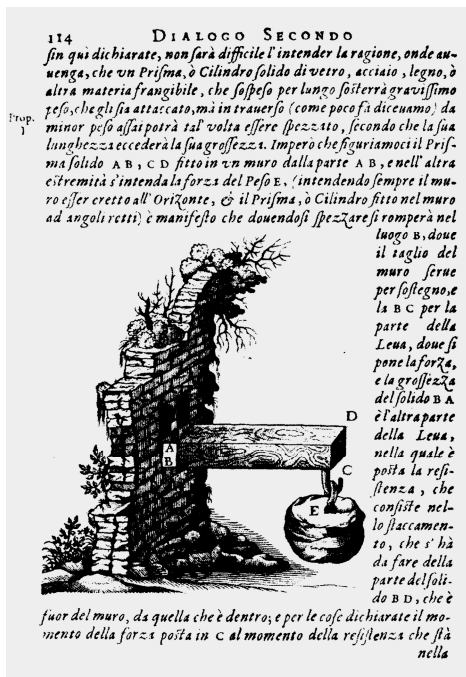 114 DIALOGO SECONDO
sin quì dichiarate, non sarà difficile l'intender la ragione, onde au-
uenga, che vn Prisma, ò Cilindro solido di vetro, acciaio, legno, ò
altra materia frangibile, che sospeso per lungo sosterrà grauissimo
peso, che gli sia attaccato, mà in trauerso (come poco fà diceuamo) da
Prop.
1
minor peso assai potrà tal' volta essere spezzato, secondo che la sua
lunghezza eccederà la sua grossezza. Imperò che figuriamoci il Pris-
ma solido AB, CD fitto in vn muro dalla parte AB, e nell' altra
estremità s'intenda la forza del Peso E, (intendendo sempre il mu-
ro esser eretto all' Orizonte, & il Prisma, ò Cilindro fitto nel muro
ad angoli retti) è manifesto che douendosi spezzare si romperà nel
luogo B, doue
il taglio del
muro serue
per sostegno, e
la BC per la
parte della
Leua, doue si
pone la forza,
e la grossezza
del solido BA
è l'altra parte
della Leua,
nella quale è
posta la resi-
stenza, che
consiste nel-
lo staccamen-
to, che s' hà
da fare della
parte del soli-
do BD, che è
fuor del muro, da quella che è dentro; e per le cose dichiarate il mo-
mento della forza posta in C al momento della resistenza che stà
nella
D
A
B
C
E